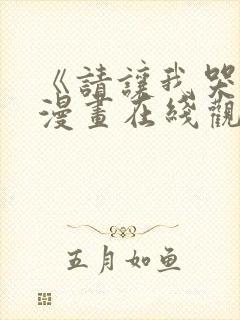 《請讓我哭
漫畫在綫觀
五月如鱼